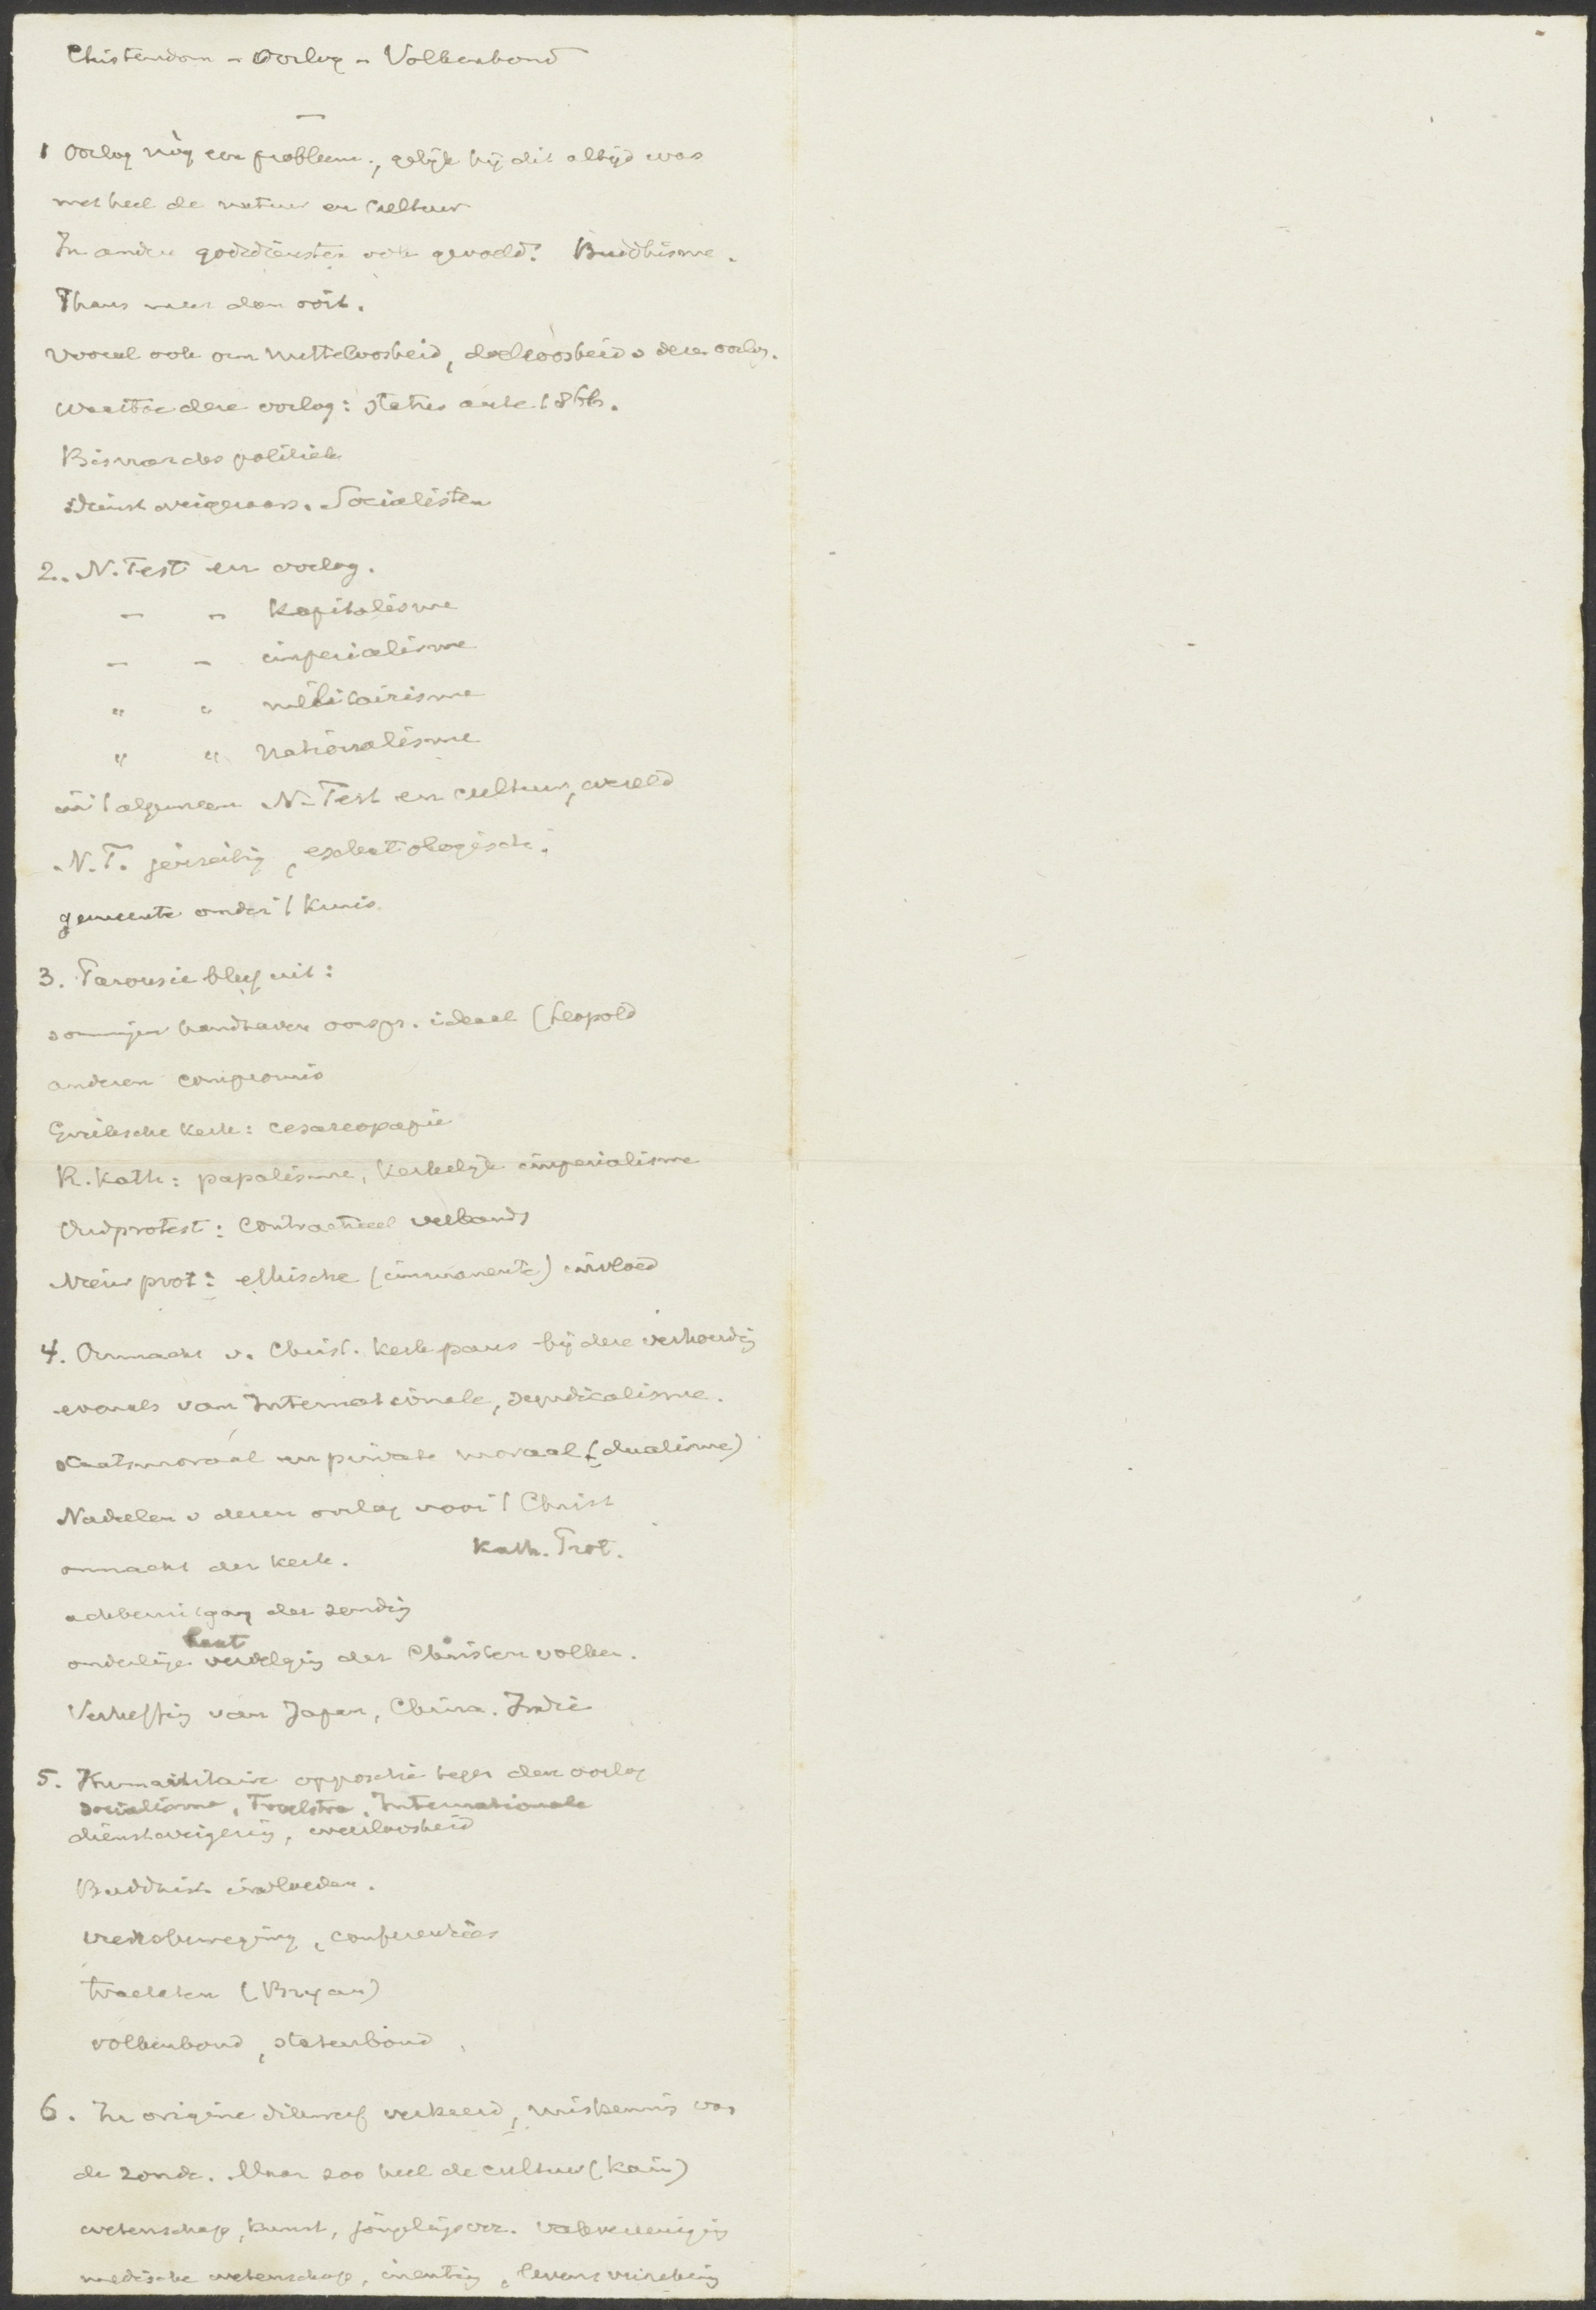 Christendom - Oorlog - Volkenbond
1 Oorlog nòg een probleem, gelijk hij dit altijd was
met heel de natuur en cultuur
In andere godsdiensten ook gevoeld? Buddhisme.
Thans meer dan ooit.
Vooral ook om nutteloosheid, doelloosheid v deze oorlog.
Waartoe deze oorlog: status ante 1866.
Bismarcks politiek
Dienstweigeraars. Socialisten
2. N. Test en oorlog.
- - Kapitalisme
- - imperialisme
" " militairisme
" " Nationalisme
in 't algemeen N. Test en cultuur, wereld
N.T. eschatologisch.
gemeente onder 't kruis
3. Parousie bleef uit:
sommigen handhaven oorspr. ideaal (Leopold
anderen compromis
Grieksche kerk: cesareopapie
R. Kath: papalisme, kerkelijk imperialisme
Oudprotest: contractueel verband
Nieuw prot: ethische (immanente) invloed
4. Onmacht v. Christ. kerk paus bij deze verhoudg
evenals van Internationale, syndicalisme.
staatsmoraal en private moraal (dualisme)
Nadeelen v dezen oorlog voor 't Christ
onmacht der kerk. Kath. Prot.
achteruitgang der zendig
onderlinge haat verdelgig der Christenvolken.
Verheffig van Japan, China. Indië
5. Humanitaire oppositie tegen den oorlog
socialisme, Troelstra, Internationale
dienstweigerig, weerloosheid
Buddhist. invloeden.
vredesbeweging, conferenties
tractaten (Bryan)
volkenbond, statenbond
6. In origine verkeerd, miskennis van
de zonde. Maar zoo heel de cultuur (Kain)
wetenschap, kunst, jongelingsver. vakvereenigig
medische wetenschap, inentig, levensverzekerig